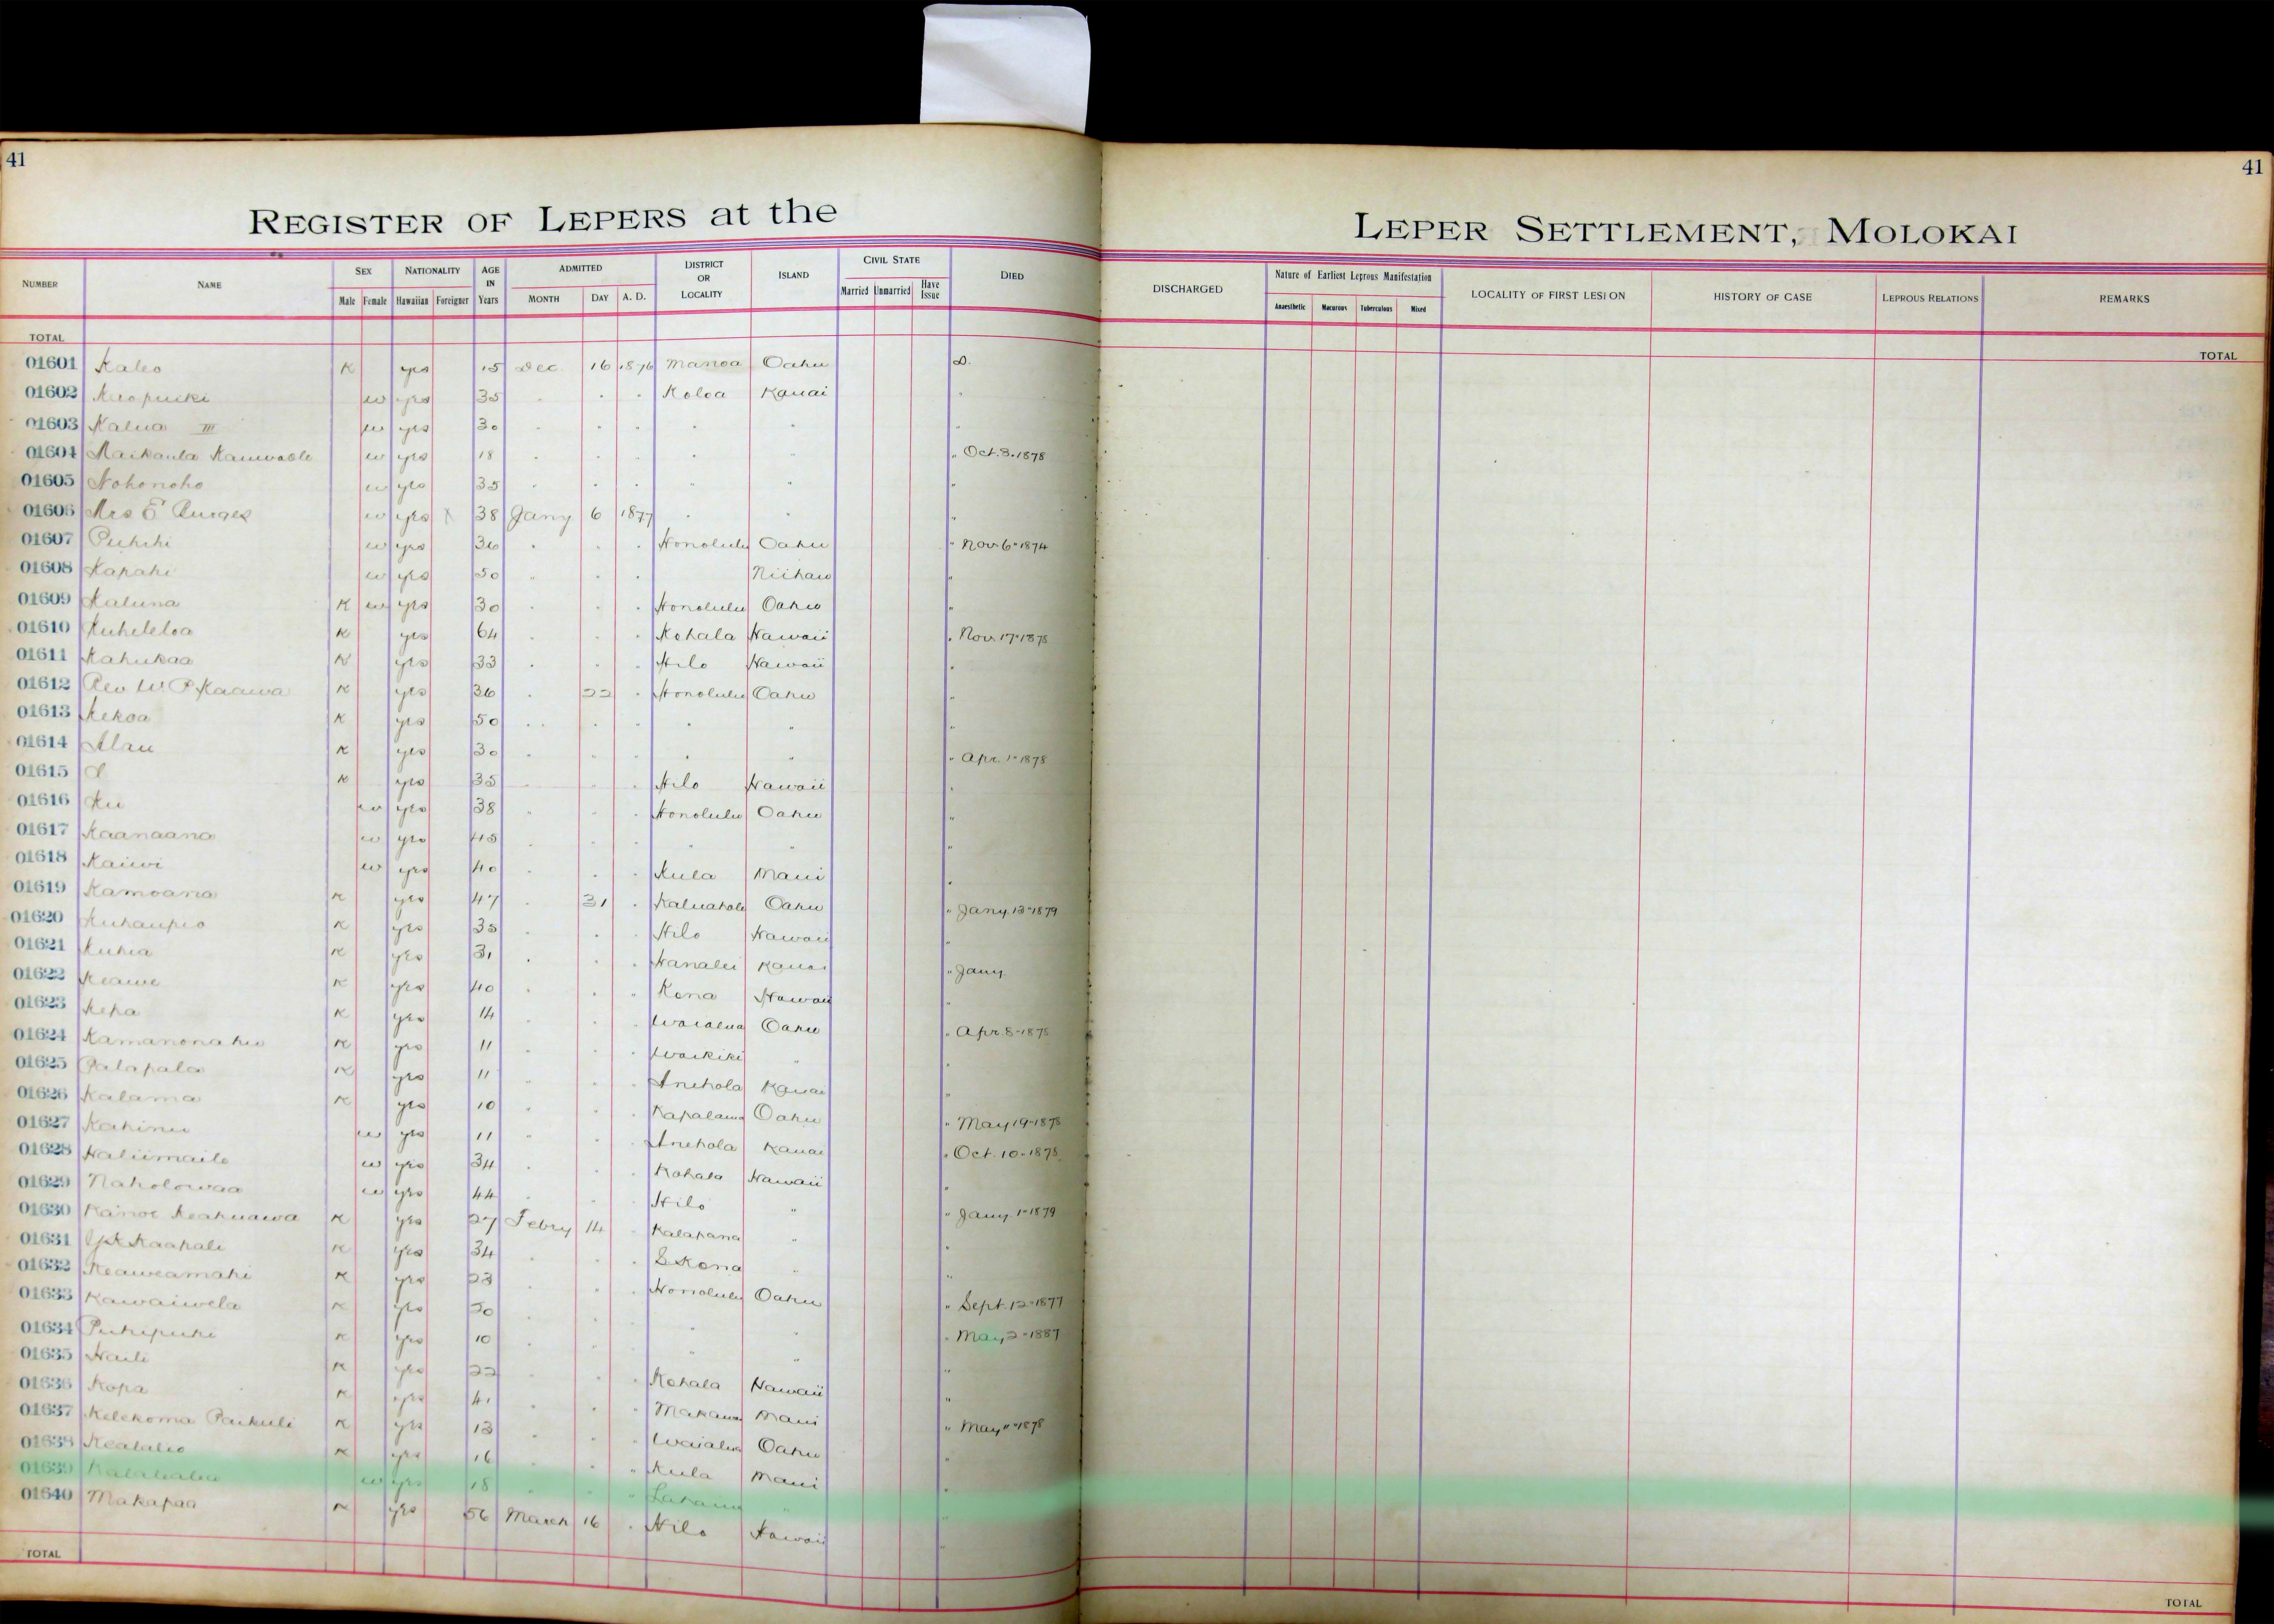 41
41
REGISTER OF LEPERS at the LEPER SETTLEMENT, MOLOKAI
NUMBER NAME SEX NATIONALITY AGE IN Years ADMITTED DISTRICT OR LOCALITY ISLAND CIVIL STATE DIED DISCHARGED Nature of Earliest Leprous Manifestation LOCALITY OF FIRST LESION HISTORY OF CASE LEPROUS RELATIONS REMARKS
Male Female Hawaiian Foreigner MONTH DAY A. D. Married Unmarried Have Issue Anaesthetic Macurous Tuberculous Mixed
TOTAL TOTAL
01601 Kaleo K yes 15 Dec. 16 1876 Manoa Oahu D.
01602 w yes 35 " " " Koloa Kauai "
01603 Kalua III w yes 30 " " " " " "
01604 Maikaula w yes 18 " " " " " " Oct. 3. 1878
01605 Nohonoho w yes 35 " " " " " "
01606 Mrs E Burges w yes X 38 Jany 6 1877 " " "
01607 Puhihi w yes 36 " " " Honolulu Oahu " Nov. 6 " 1874
01608 Kapahi w yes 50 " " " Niihau "
01609 Kaluna K w yes 30 " " " Honolulu Oahu "
01610 Kuheleloa K yes 64 " " " Kohala Hawaii " Nov. 17 " 1878
01611 Kahukaa K yes 33 " " " Hilo Hawaii "
01612 Rev W. P. Kaawa K yes 36 " 22 " Honolulu Oahu "
01613 Kekoa K yes 50 " " " " " "
01614 Alau K yes 30 " " " " " " Apr. 1 " 1878
01615 K yes 35 " " " Hilo Hawaii "
01616 Ku w yes 38 " " " Honolulu Oahu "
01617 Kaanaana w yes 45 " " " " " "
01618 Kaiwi w yes 40 " " " Kula Maui "
01619 Kamoana K yes 47 " 31 " Kaluahole Oahu " Jany. 13 " 1879
01620 Kuhaupio K yes 35 " " " Hilo Hawaii "
01621 Kuhia K yes 31 " " " Hanalei Kauai " Jany.
01622 Keawe K yes 40 " " " Kona Hawaii "
01623 Kepa K yes 14 " " " Waialua Oahu " Apr. 8 - 1878
01624 Kamanonahu K yes 11 " " " Waikiki " "
01625 Palapala K yes 11 " " " Anehola Kauai "
01626 Kalama K yes 10 " " " Kapalama Oahu " May 19 - 1878
01627 Kahinu w yes 11 " " " Anehola Kauai " Oct. 10 - 1878
01628 Haliimaile w yes 34 " " " Kohala Hawaii "
01629 Naholowaa w yes 44 " " " Hilo " " Jany. 1 " 1879
01630 Kainoe Keahuawa K yes 27 Febry 14 " Kalapana " "
01631 Kaapale K yes 34 " " " S Kona " "
01632 Keaweamahi K yes 23 " " " Honolulu Oahu " Sept. 12 " 1877
01633 Kawaiwela K yes 20 " " " " " " May 2 " 1887
01634 Puhipuhi K yes 10 " " " " " "
01635 Haili K yes 22 " " " Kohala Hawaii "
01636 Kopa K yes 41 " " " Makawao Maui " May 11 " 1878
01637 Kelekoma Paikuli K yes 13 " " " Waialua Oahu "
01638 Kealalio K yes 16 " " " Kula Maui "
01639 w yes 18 " " " Lahaina " "
01640 Makapaa K yes 56 March 16 " Hilo Hawaii "
TOTAL TOTAL